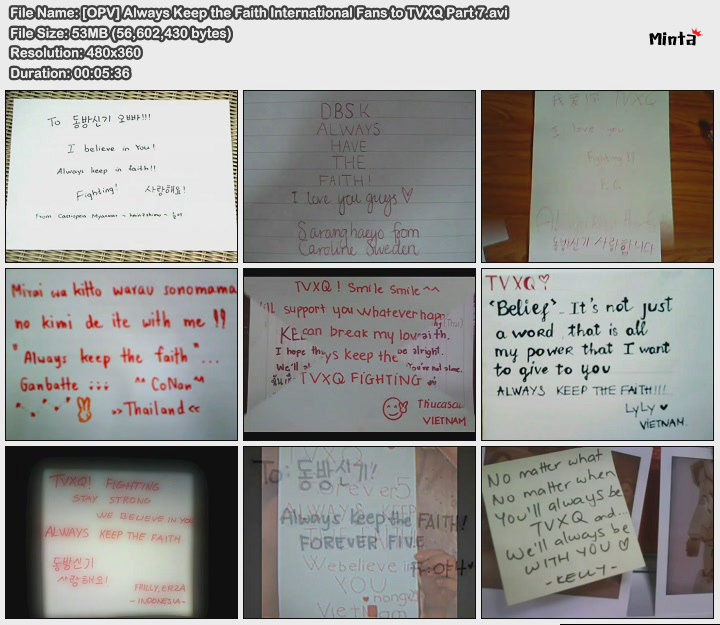 File Name: [OPV] Always Keep the Faith International Fans to TVXQ Part 7.avi
File Size: 53MB (56,602,430 bytes)
Resolution: 480x360
Duration: 00:05:36
Minta
To 동방신기 오빠!!!
I believe in You!
Always keep in faith!!
Fighting! 사랑해요!
From Cassiopeia Myanmar
DBSK
ALWAYS
HAVE
THE
FAITH!
I love you guys ♡
Saranghaeyo from
Caroline Sweden
TVXQ
I love you
Fighting!!
동방신기 사랑합니다
Mirai wa kitto warau sonomama
no kimi de ite with me !!
"Always keep the faith"...
Ganbatte ;;; ^^ CoNan ^^
>>Thailand<<
TVXQ! Smile Smile ~~
support you whatever
can break my
I hope alright.
We'll You're not alone.
TVXQ FIGHTING
Thucasau
VIETNAM
TVXQ ♡
"Belief" - It's not just
a word, that is all
my power that I want
to give to you
ALWAYS KEEP THE FAITH!!!
LyLy ♥
VIETNAM.
TVXQ! FIGHTING
STAY STRONG
WE BELIEVE IN YOU
ALWAYS KEEP THE FAITH
동방신기
사랑해요!
FRILLY, ERZA
- INDONESIA -
To: 동방신기!
Forever5
Always keep the FAITH!
FOREVER FIVE
We believe in
YOU
Vietnam
No matter what
No matter when
You'll always be
TVXQ and...
We'll always be
WITH YOU ♡
- KELLY -